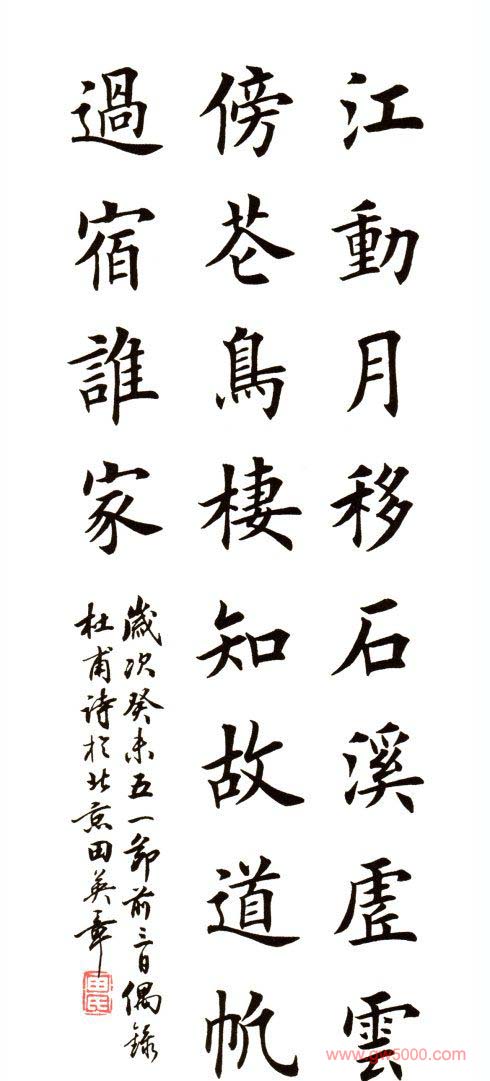 江動月移石溪虛雲
傍花鳥棲知故道帆
過宿誰家
歲次癸未五一節前三日偶錄
杜甫詩於北京田英章
田氏
www.gw5000.com